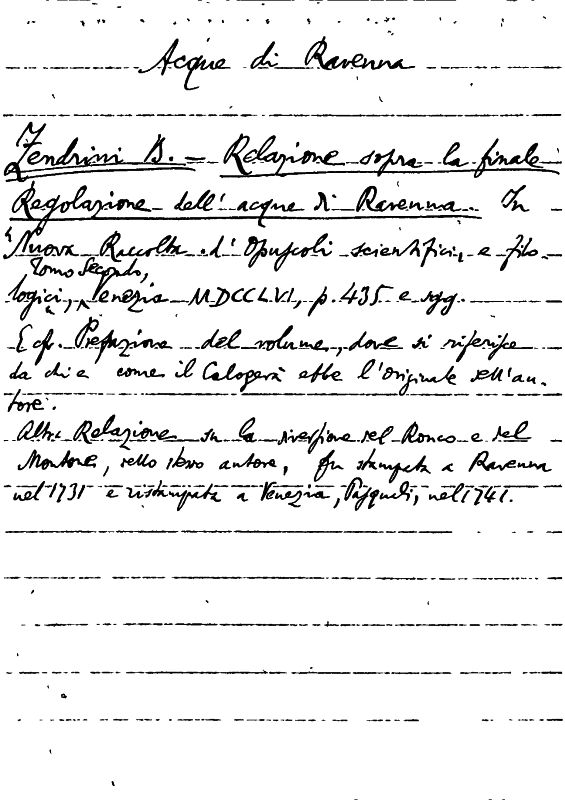 Acque di Ravenna
Zendrini B. = Relazione sopra la finale
Regolazione dell' acque di Ravenna. In
Nuova Raccolta d'Opuscoli scientifici, e filo-
Tomo Secondo,
logici, Venezia MDCCLVI, p. 435 e sgg.
E cfr. Prefazione del volume, dove si riferisce
da chi e come il Calogerà ebbe l'originale dell'au-
tore.
Altra Relazione su la diversione del Ronco e del
Montone, dello stesso autore, fu stampata a Ravenna
nel 1731 e ristampata a Venezia, Pasquali, nel 1741.